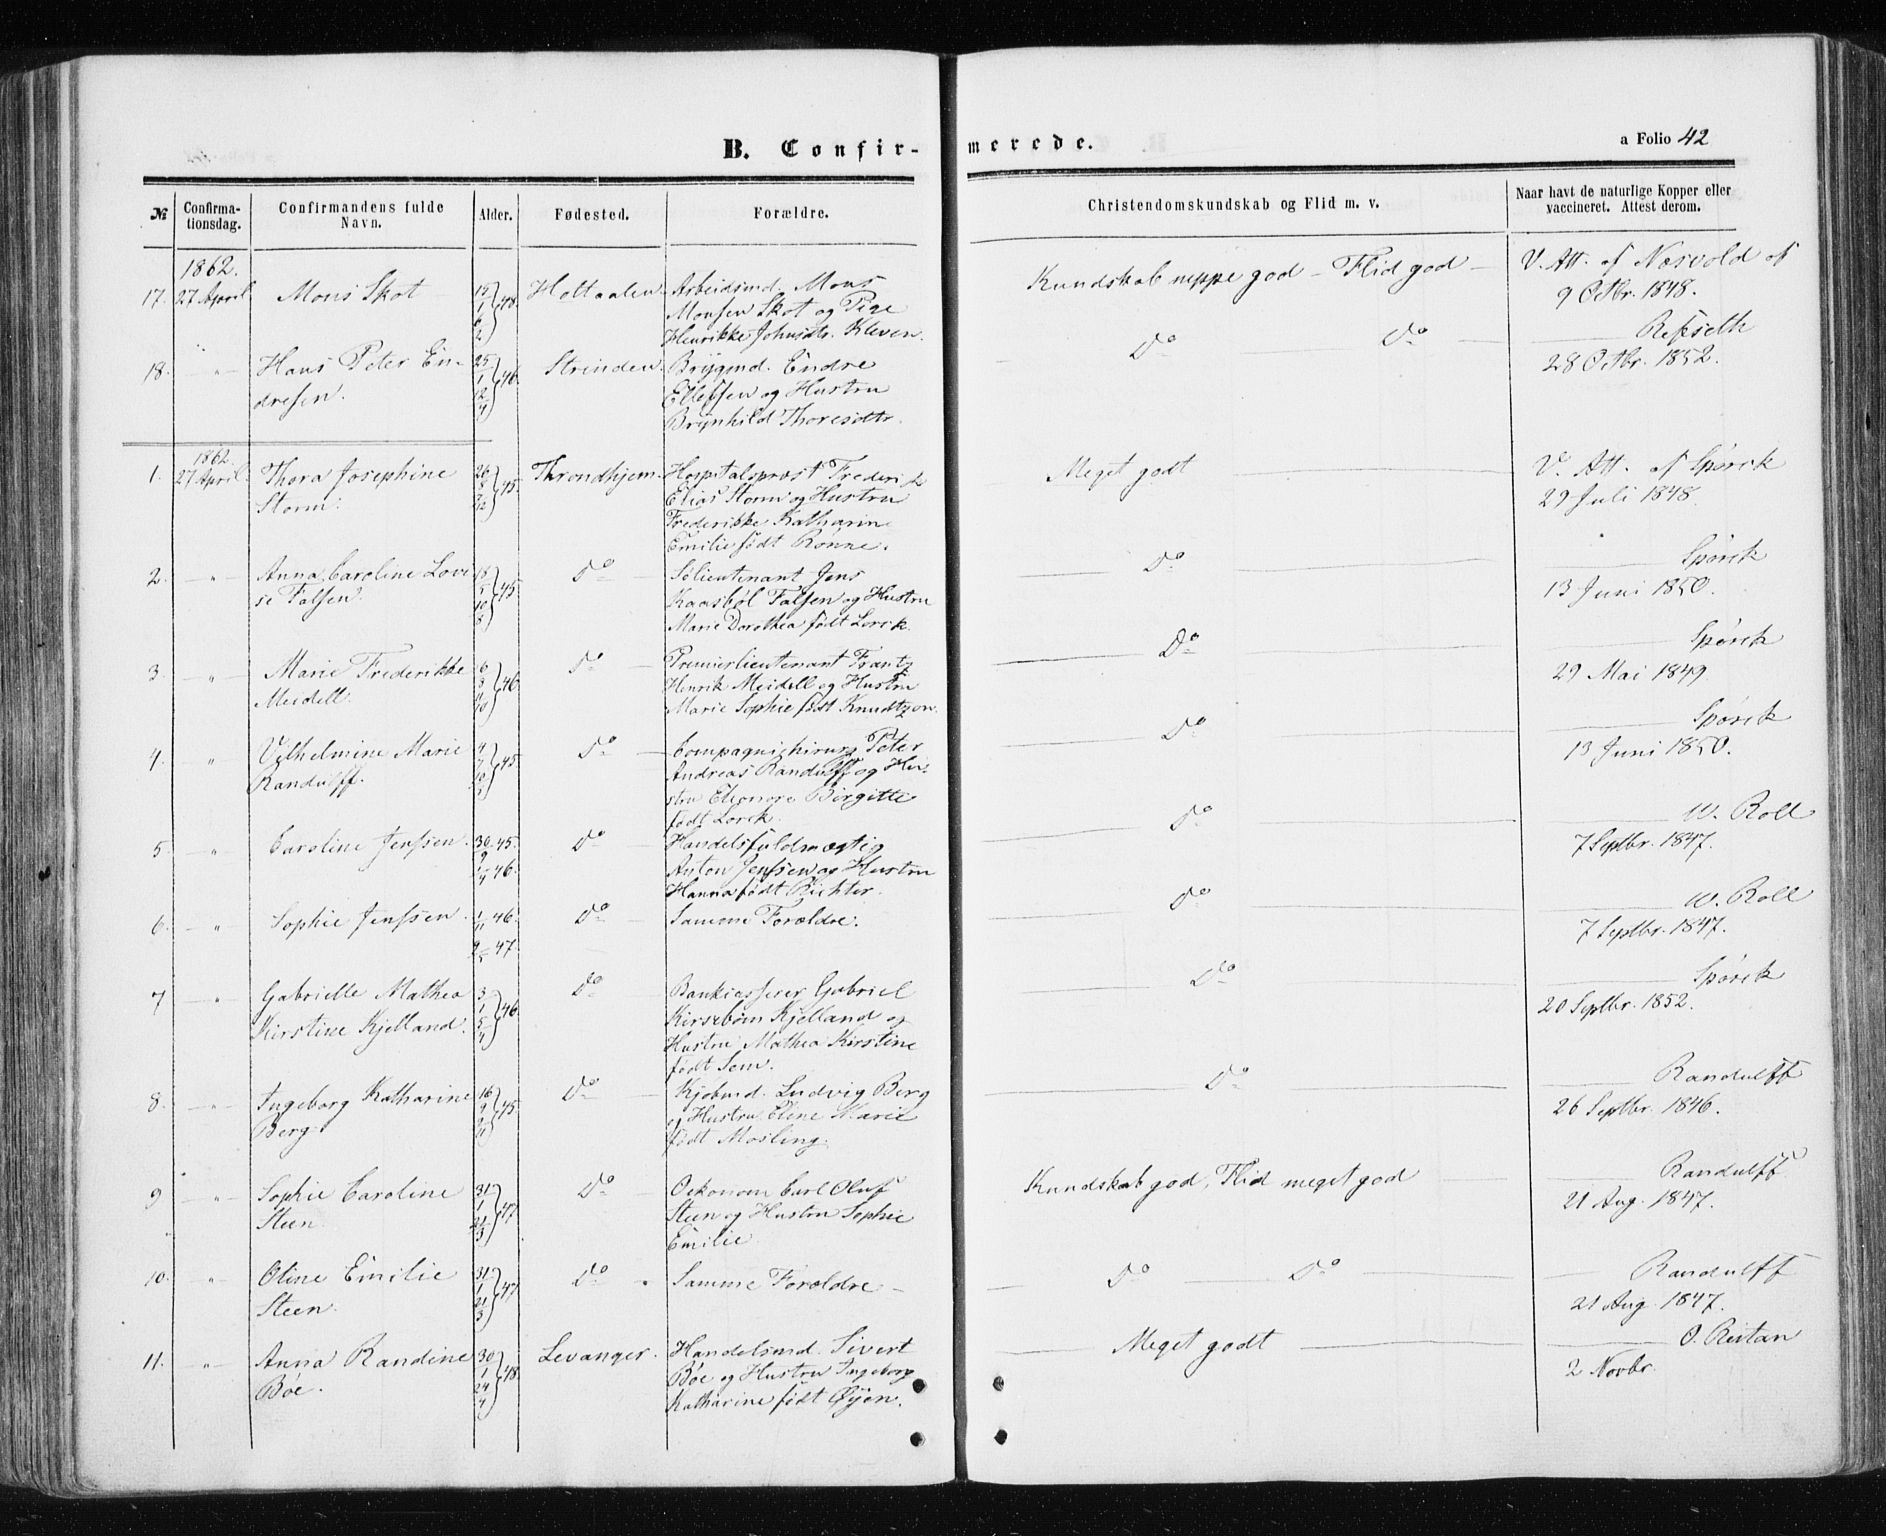 B. Confirmerede.
a Folio 42
№ Confirmationsdag. Confirmandens fulde Navn. Alder. Fødested. Forældre. Christendomskundskab og Flid m. v. Naar havt de naturlige Kopper eller vaccineret. Attest derom.
1862.
17. 27 April Mons Skot 48. Holtaalen Arbeidsmd. Mons Kundskab neppe god - Flid god - V. Att. af Næsvold af
Monsen Skot og Pige 9 Octbr. 1848.
Henrikke Johnsdtr. Kleven.
18. " Hans Peter En- 25/1 12/4 46. Strinden. Brygmd. Endre Do Do Refseth
dresen. Ellefsen og Hustru 28 Octbr. 1852.
Brynhild Thoresdtr.
1862.
1. 27 April. Thora Josephine 45. Throndhjem. Hospitalspræst Frederik Meget godt V. Att. af Spørck
Storm. Elias Storm og Hustru 29 Juli 1848.
Frederikke Katharine
Emilie født Rønne.
2. " Anna Caroline Lovi- 18/5 10/8 45 Do Sølieutenant Jens Do Spørck
se Falsen. Kaasbøl Falsen og Hustru 13 Juni 1850.
Marie Dorothea født Lorck.
3. " Marie Frederikke 46 Do Premierlieutenant Frantz Do Spørck
Meidell. Henrik Meidell og Hustru 29 Mai 1849.
Marie Sophie født Knudtzon.
4. " Vilhelmine Marie 45. Do Compagnichirurg Peter Do Spørck
Randulff. Andreas Randulff og Hu- 13 Juni 1850.
stru Eleonore Birgitte
født Lorck.
5. " Caroline Jenssen. 30/9 45. Do Handelsfuldmægtig Do W. Roll
46. Anton Jenssen og Hustru 7 Septbr. 1847.
Hanna født Richter.
6. " Sophie Jenssen. 1/11 46. Do Samme Forældre. Do W. Roll
47. 7 Septbr. 1847.
7 " Gabrielle Mathea 3/1 5/4 46. Do Bankkasserer Gabriel Do Spørck
Kirstine Kjelland. Kirsebom Kjelland og 20 Septbr. 1852.
Hustru Mathea Kirstine
født Sem.
8. " Ingeborg Katharine 16/9 45 Do Kjøbmd. Ludvig Berg Do Randulff
Berg. og Hustru Eline Marie 26 Septbr. 1846.
født Mosling.
9 " Sophie Caroline 31/1 21/3 47 Do Oekonom Carl Oluf Kundskab god, Flid meget god Randulff
Steen. Steen og Hustru Sophie 21 Aug. 1847.
Emilie
10. " Oline Emilie 31/1 21/3 47 Do Samme Forældre Do Do Randulff
Steen. 21 Aug. 1847.
11. " Anna Randine 30/1 24/4 48. Levanger. Handelsmd. Sivert Meget godt O. Ristan
Bøe. Bøe og Hustru Ingeborg 2 Novbr.
Katharine født Øyen.